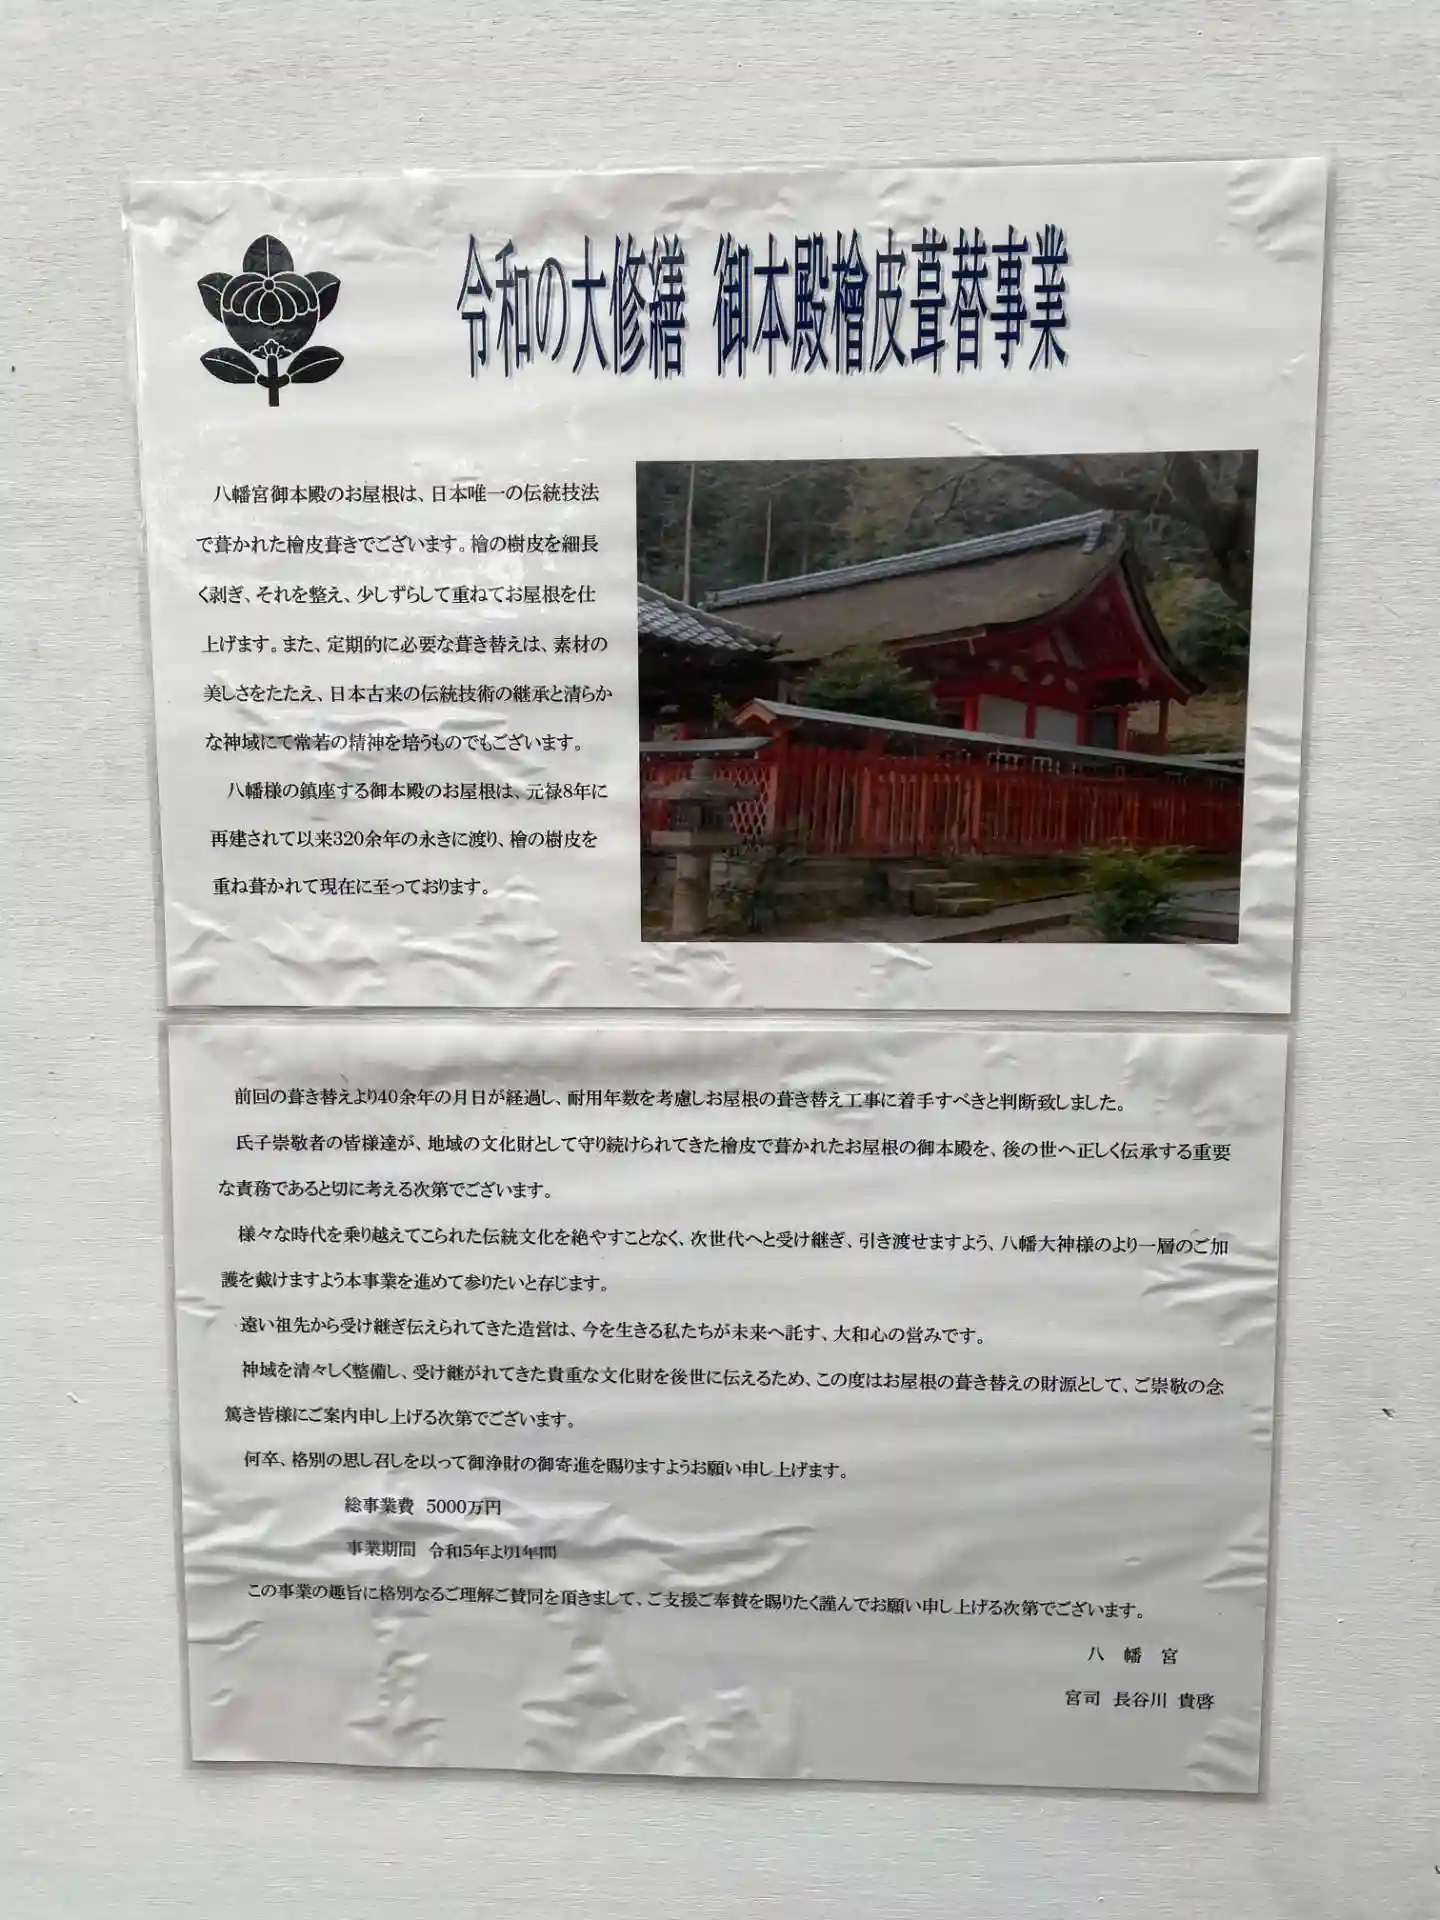 令和の大修繕 御本殿檜皮葺替事業
八幡宮御本殿のお屋根は、日本唯一の伝統技法
で葺かれた檜皮葺きでございます。檜の樹皮を細長
く剥ぎ、それを整え、少しずらして重ねてお屋根を仕
上げます。また、定期的に必要な葺き替えは、素材の
美しさをたたえ、日本古来の伝統技術の継承と清らか
な神域にて常若の精神を培うものでもございます。
八幡様の鎮座する御本殿のお屋根は、元禄8年に
再建されて以来320余年の永きに渡り、檜の樹皮を
重ね葺かれて現在に至っております。
前回の葺き替えより40余年の月日が経過し、耐用年数を考慮しお屋根の葺き替え工事に着手すべきと判断致しました。
氏子崇敬者の皆様達が、地域の文化財として守り続けられてきた檜皮で葺かれたお屋根の御本殿を、後の世へ正しく伝承する重要
な責務であると切に考える次第でございます。
様々な時代を乗り越えてこられた伝統文化を絶やすことなく、次世代へと受け継ぎ、引き渡せますよう、八幡大神様のより一層のご加
護を戴けますよう本事業を進めて参りたいと存じます。
遠い祖先から受け継ぎ伝えられてきた造営は、今を生きる私たちが未来へ託す、大和心の営みです。
神域を清々しく整備し、受け継がれてきた貴重な文化財を後世に伝えるため、この度はお屋根の葺き替えの財源として、ご崇敬の念
篤き皆様にご案内申し上げる次第でございます。
何卒、格別の思し召しを以って御浄財の御寄進を賜りますようお願い申し上げます。
総事業費 5000万円
事業期間 令和5年より1年間
この事業の趣旨に格別なるご理解ご賛同を頂きまして、ご支援ご奉賛を賜りたく謹んでお願い申し上げる次第でございます。
八 幡 宮
宮司 長谷川 貴啓